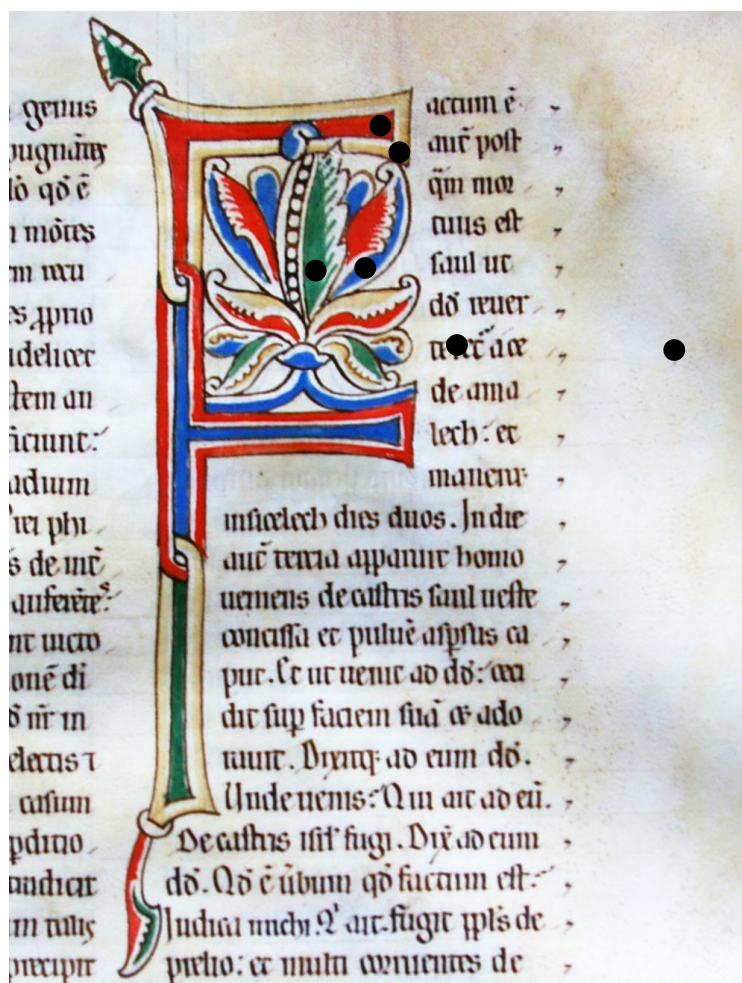 genus
pugnātes
qd̄ ē
mōtes
recu
pprio
an
phi
de
auferēte
uicto
di
nr̄ in
electis ⁊
casum
talis
precipit
Factum ē
aut̄ post
q̄m mor
tuus est
saul ut
dd̄ reuer
a ce
de ama
lech: et
maneret
insicelech dies duos. In die
aut̄ tercia apparuit homo
ueniens de castris saul ueste
concissa et puluē aspsus ca
put. Et ut uenit ad dd̄: ceci
dit sup faciem suā & ado
rauit. Dixitq; ad eum dd̄.
Unde uenis? Qui ait ad eū.
De castris isrł fugi. Dix̄ ad eum
dd̄. Qd̄ ē ūbum qd̄ factum est?
Indica michi. Qⁱ ait. fugit ppl's de
prelio: et multi corruentes de